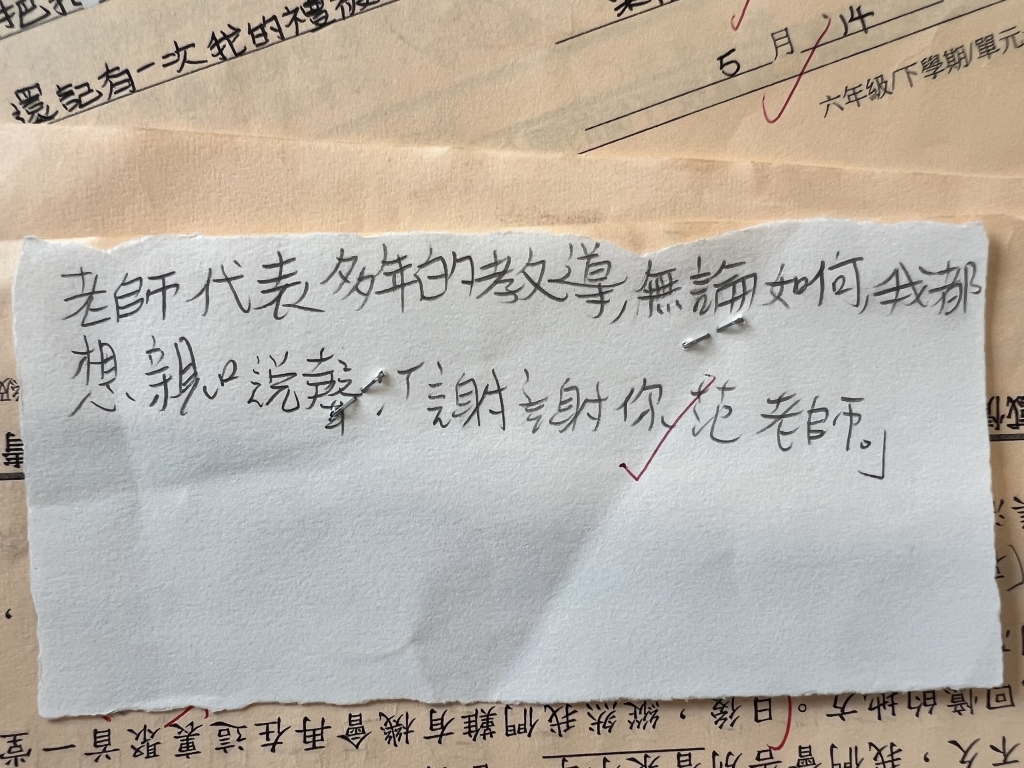 還記有一次我的禮
5月14
六年級/下學期/單元
老師代表多年的教導,無論如何,我都
想親口說聲:「謝謝你范老師。」
回憶的地方。日後,縱然我們難有機會再在這裏聚首一堂
不久,我們會告別